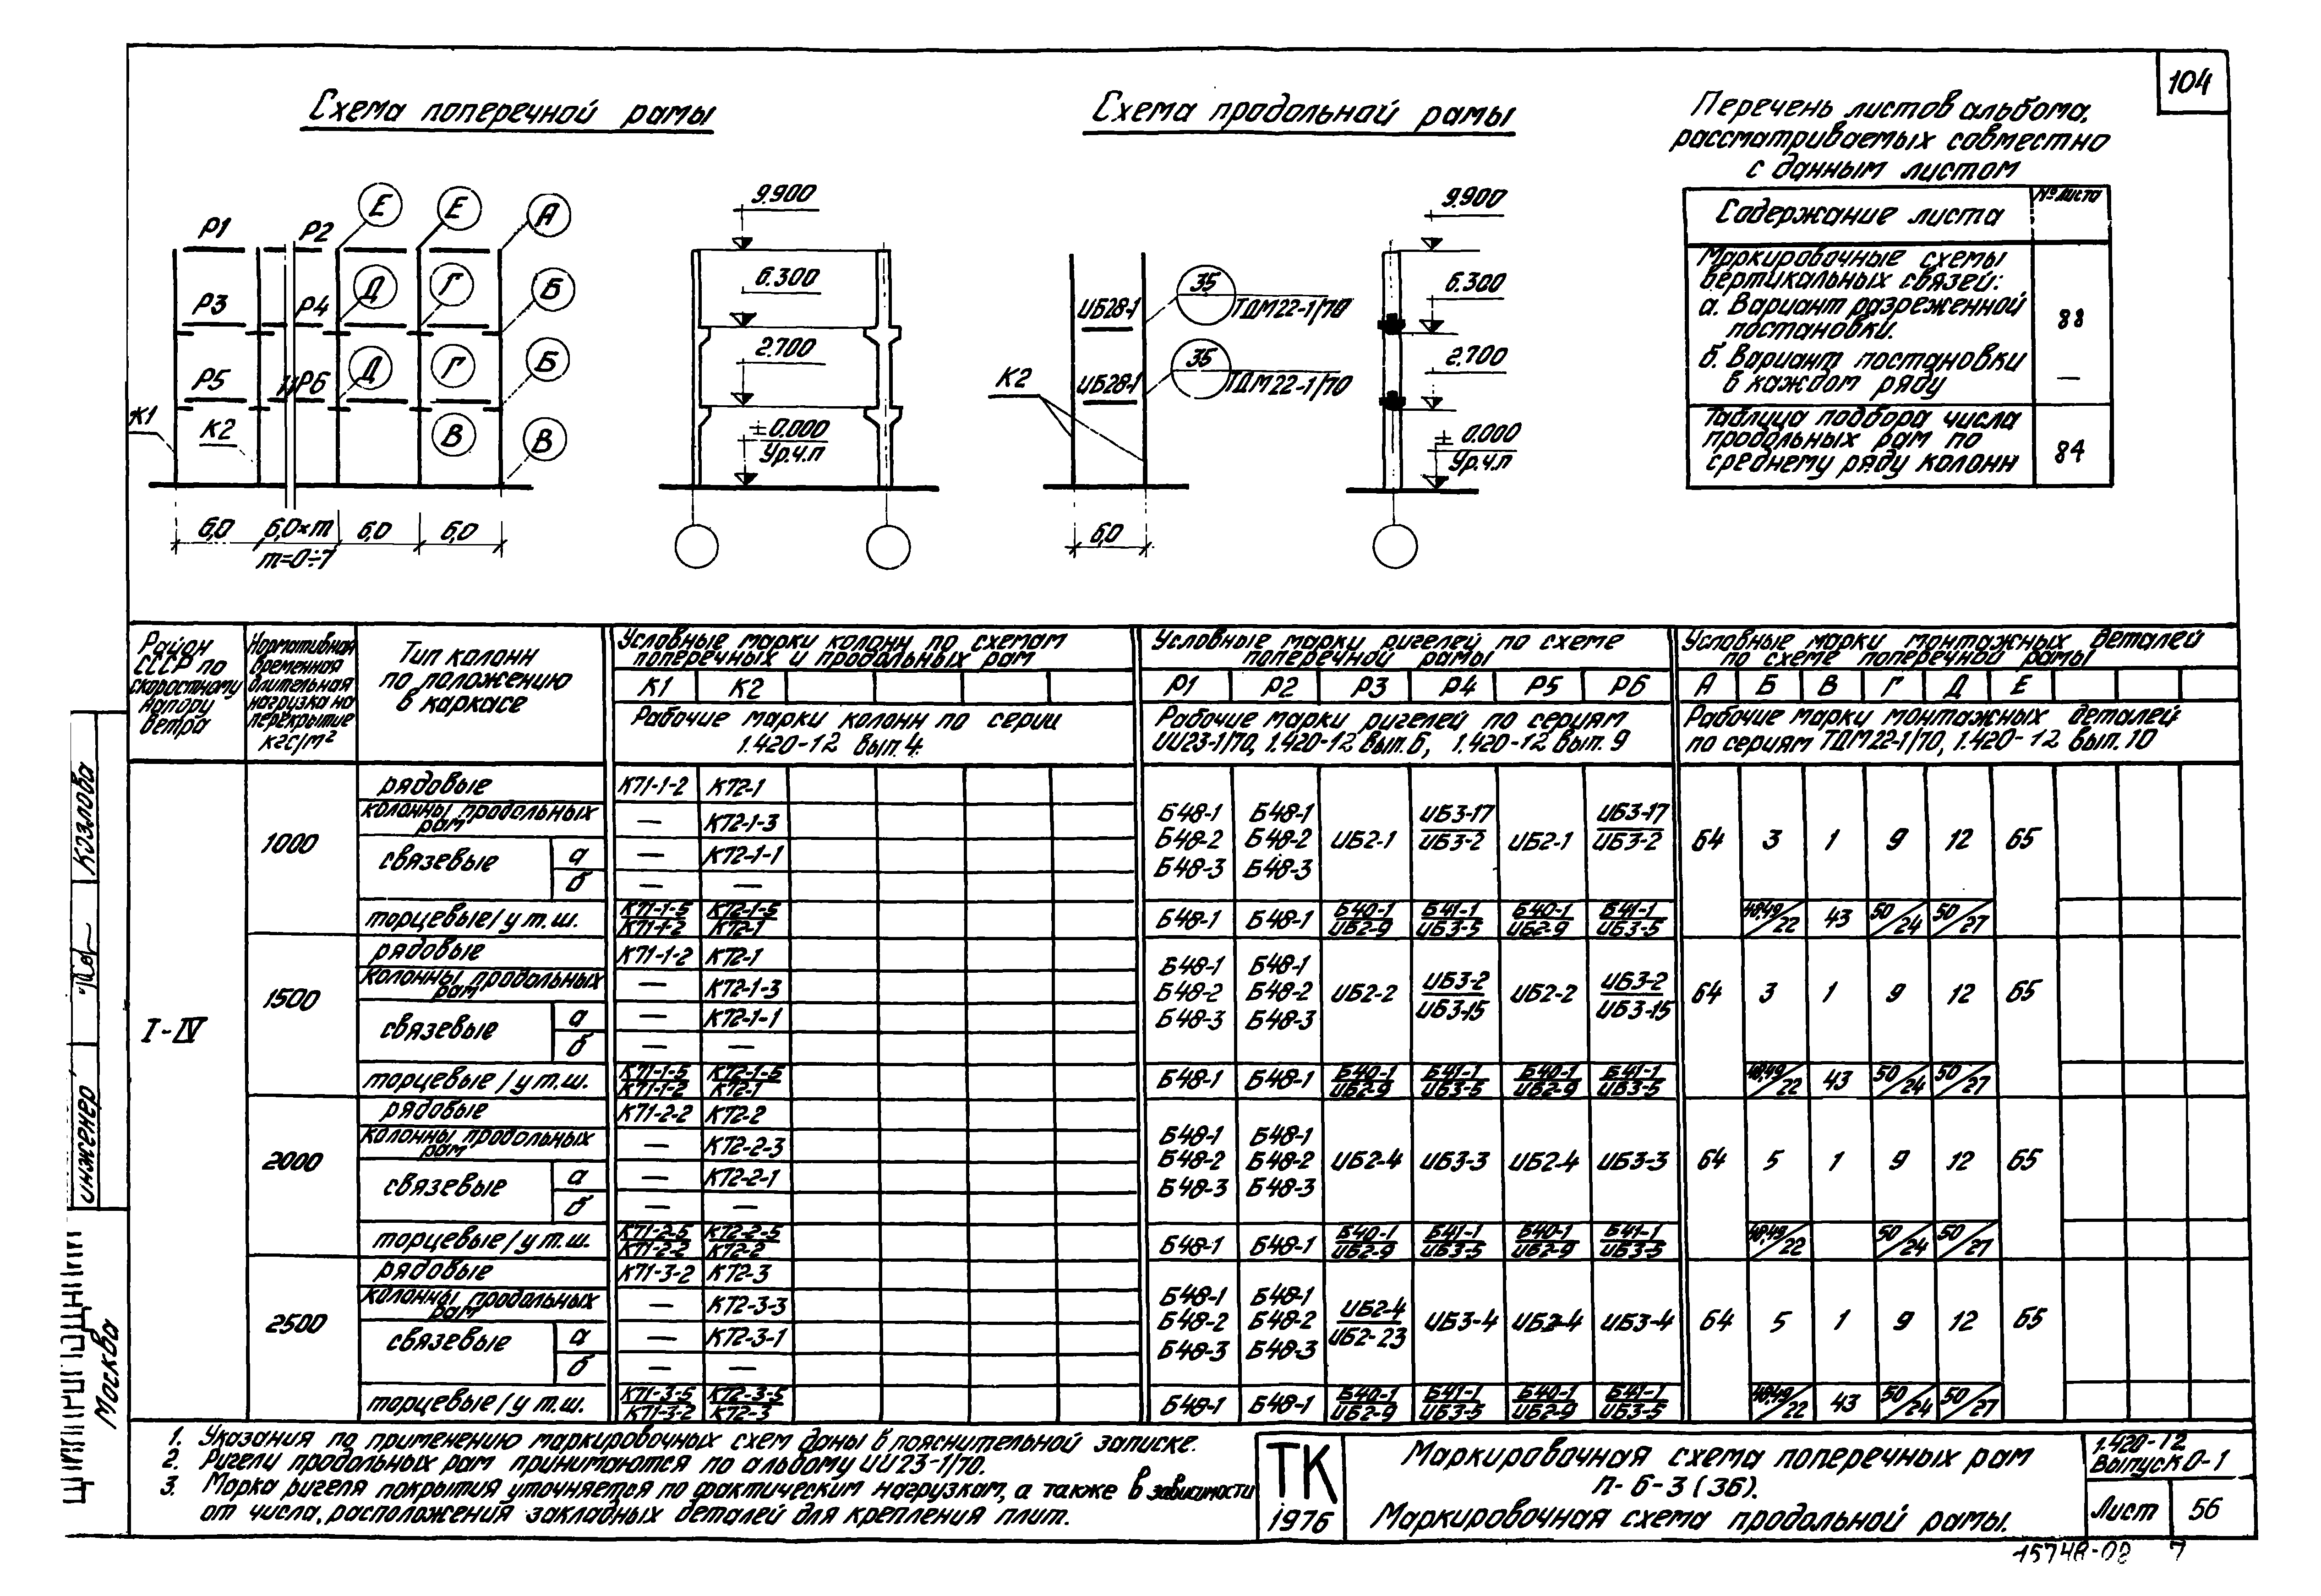 104
Схема поперечной рамы
Схема продольной рамы
Перечень листов альбома,
рассматриваемых совместно
с данным листом
Содержание листа
№ листа
Маркировочные схемы
вертикальных связей:
а. Вариант разреженной
постановки.
88
б. Вариант постановки
в каждом ряду
—
Таблица подбора числа
продольных рам по
среднему ряду колонн
84
Р1 Р2 Е Е А
Р3 Р4 Д Г Б
Р5 Р6 Д Г Б
К1 К2 В В
6,0 6,0×m 6,0 6,0
m=0÷7
9.900
6.300
2.700
±0.000
Ур.ч.п
ИБ28-1 35 ТДМ22-1/70
ИБ28-1 35 ТДМ22-1/70
К2
6,0
9.900
6.300
2.700
±0.000
Ур.ч.п
Район
СССР по
скоростному
напору
ветра
Нормативная
временная
длительная
нагрузка на
перекрытие
кгс/м²
Тип колонн
по положению
в каркасе
Условные марки колонн по схемам
поперечных и продольных рам
К1 К2
Рабочие марки колонн по серии
1.420-12 вып. 4
Условные марки ригелей по схеме
поперечной рамы
Р1 Р2 Р3 Р4 Р5 Р6
Рабочие марки ригелей по сериям
ИИ23-1/70, 1.420-12 вып. 6, 1.420-12 вып. 9
Условные марки монтажных деталей
по схеме поперечной рамы
А Б В Г Д Е
Рабочие марки монтажных деталей
по сериям ТДМ22-1/70, 1.420-12 вып. 10
I-IV
1000
рядовые К71-1-2 К72-1
колонны продольных рам — К72-1-3
связевые а — К72-1-1
б — —
Б48-1 Б48-1
Б48-2 Б48-2
Б48-3 Б48-3
ИБ2-1 ИБ3-17/ИБ3-2 ИБ2-1 ИБ3-17/ИБ3-2
64 3 1 9 12 65
торцевые/у т.ш. К71-1-5/К71-1-2 К72-1-5/К72-1 Б48-1 Б48-1 Б40-1/ИБ2-9 Б41-1/ИБ3-5 Б40-1/ИБ2-9 Б41-1/ИБ3-5 48,49/22 43 50/24 50/27
1500
рядовые К71-1-2 К72-1
колонны продольных рам — К72-1-3
связевые а — К72-1-1
б — —
Б48-1 Б48-1
Б48-2 Б48-2
Б48-3 Б48-3
ИБ2-2 ИБ3-2/ИБ3-15 ИБ2-2 ИБ3-2/ИБ3-15
64 3 1 9 12 65
торцевые/у т.ш. К71-1-5/К71-1-2 К72-1-5/К72-1 Б48-1 Б48-1 Б40-1/ИБ2-9 Б41-1/ИБ3-5 Б40-1/ИБ2-9 Б41-1/ИБ3-5 48,49/22 43 50/24 50/27
2000
рядовые К71-2-2 К72-2
колонны продольных рам — К72-2-3
связевые а — К72-2-1
б — —
Б48-1 Б48-1
Б48-2 Б48-2
Б48-3 Б48-3
ИБ2-4 ИБ3-3 ИБ2-4 ИБ3-3
64 5 1 9 12 65
торцевые/у т.ш. К71-2-5/К71-2-2 К72-2-5/К72-2 Б48-1 Б48-1 Б40-1/ИБ2-9 Б41-1/ИБ3-5 Б40-1/ИБ2-9 Б41-1/ИБ3-5 48,49/22 50/24 50/27
2500
рядовые К71-3-2 К72-3
колонны продольных рам — К72-3-3
связевые а — К72-3-1
б — —
Б48-1 Б48-1
Б48-2 Б48-2
Б48-3 Б48-3
ИБ2-4/ИБ2-23 ИБ3-4 ИБ2-4 ИБ3-4
64 5 1 9 12 65
торцевые/у т.ш. К71-3-5/К71-3-2 К72-3-5/К72-3 Б48-1 Б48-1 Б40-1/ИБ2-9 Б41-1/ИБ3-5 Б40-1/ИБ2-9 Б41-1/ИБ3-5 48,49/22 43 50/24 50/27
1. Указания по применению маркировочных схем даны в пояснительной записке.
2. Ригели продольных рам принимаются по альбому ИИ23-1/70.
3. Марка ригеля покрытия уточняется по фактическим нагрузкам, а также в зависимости
от числа, расположения закладных деталей для крепления плит.
ТК
1976
Маркировочная схема поперечных рам
п-6-3 (36).
Маркировочная схема продольной рамы.
1.420-12
Выпуск 0-1
Лист 56
15748-02 7
Козлова
инженер
Москва